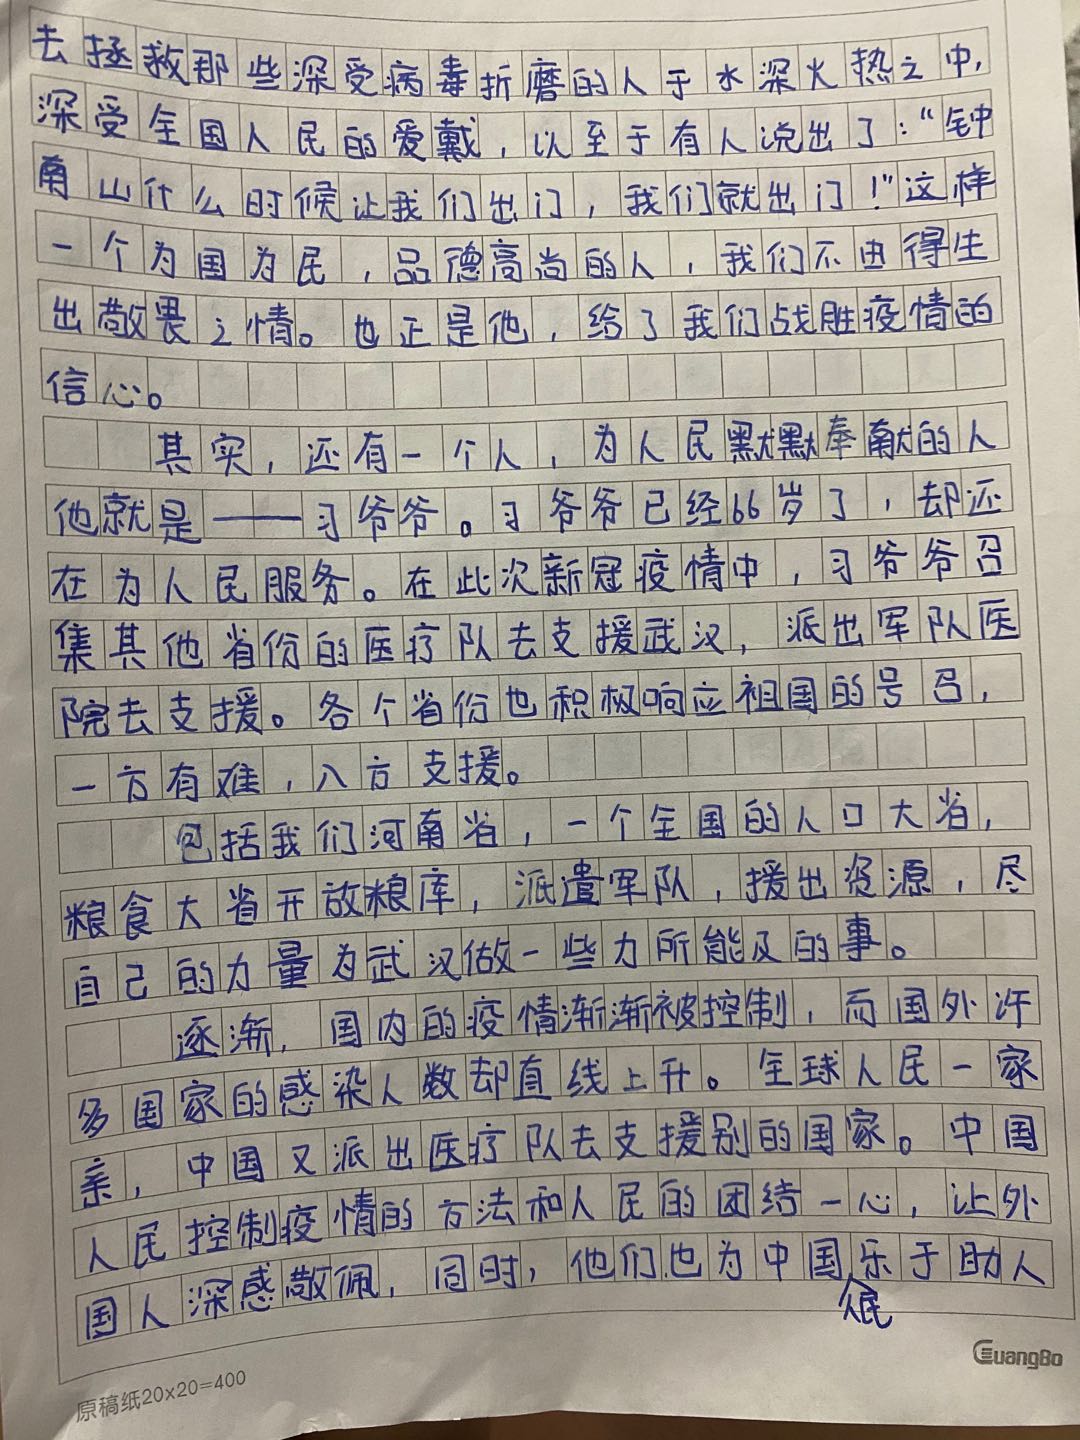 去拯救那些深受病毒折磨的人于水深火热之中,
深受全国人民的爱戴，以至于有人说出了：“钟
南山什么时候让我们出门，我们就出门！”这样
一个为国为民，品德高尚的人，我们不由得生
出敬畏之情。也正是他，给了我们战胜疫情的
信心。
其实，还有一个人，为人民默默奉献的人
他就是——习爷爷。习爷爷已经66岁了，却还
在为人民服务。在此次新冠疫情中，习爷爷召
集其他省份的医疗队去支援武汉，派出军队医
院去支援。各个省份也积极响应祖国的号召，
一方有难，八方支援。
包括我们河南省，一个全国的人口大省，
粮食大省开放粮库，派遣军队，援出资源，尽
自己的力量为武汉做一些力所能及的事。
逐渐，国内的疫情渐渐被控制，而国外许
多国家的感染人数却直线上升。全球人民一家
亲，中国又派出医疗队去支援别的国家。中国
人民控制疫情的方法和人民的团结一心，让外
国人深感敬佩，同时，他们也为中国人民乐于助人
GuangBo
原稿纸20x20=400